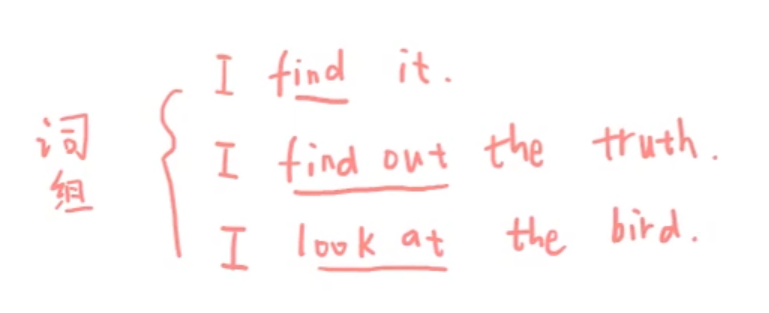 词组
I find it.
I find out the truth.
I look at the bird.